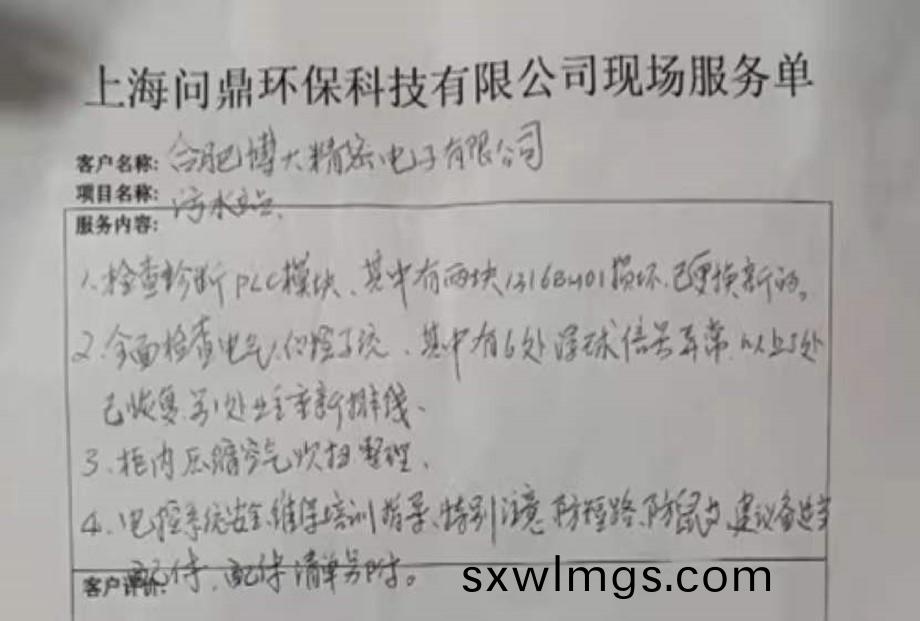 上海问鼎环保科技有限公司现场服务单
客户名称: 合肥博大精密电子有限公司
项目名称: 污水站
服务内容:
1、检查诊断PLC模块、其中有两块1316BU01损坏.已更换新的。
2、全面检查电气、仪控系统、其中有6处浮球信号异常.以上5处
已恢复.另1处业主重新排线、
3、柜内压缩空气吹扫整理、
4、电控系统安全、维保培训指导、特别注意防短路、防鼠、建议备适当
配件、配件清单另附。
客户评价:
sxwlmgs.com